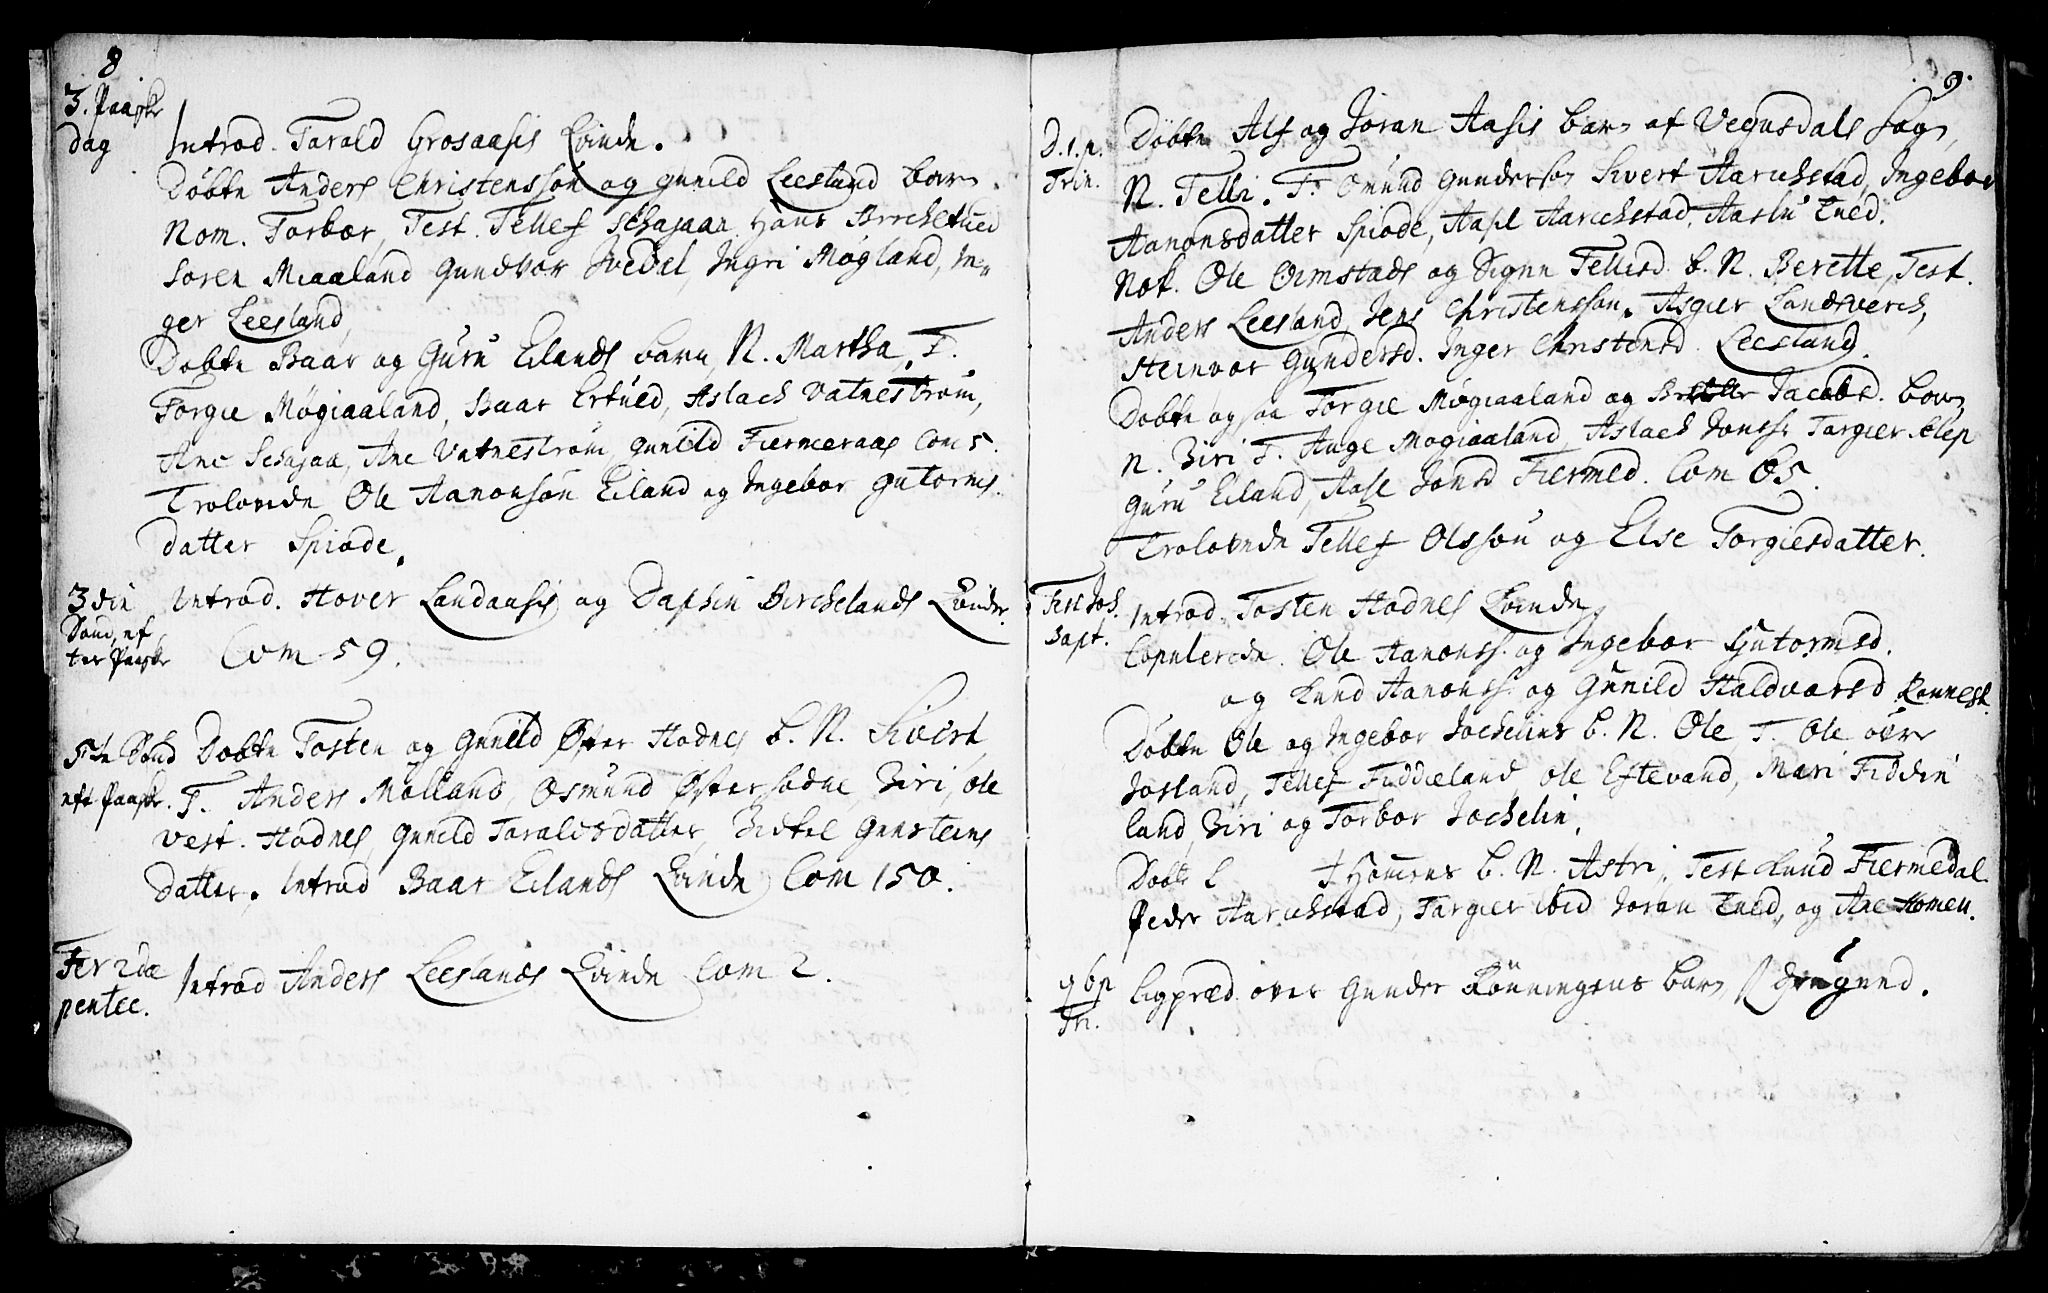 8
3. Paaske
dag
Introd. Tarald Grosaasis Qvinde.
Döbte Anders Christenssön og gunild Leesland barn.
Nom. Torbor, Test. Tellef Schajaaa Hans Birchetued
Soren Miaaland Gundvor Svedal, Ingri Møgland, In-
ger Leesland,
Döbte Baar og Guru Eilands barn, N. Martha, T.
Torgie Møgiaaland, Baar Ertued, Aslach Vatnestrøm,
Ane Schajaa, Ane Vatnestrøm, gunild Fiermeraas Com 5.
Trolovede Ole Aanonsøn Eiland og Ingebor gutorms
datter Spiode.
3 die
Sønd. ef
ter Paaske
Introd. Hover Landaasis og Daphin Birchelands Qvinder.
Com 59.
5te Sønd
eft Paaske.
Dobte Tosten og Gunild Øster Hodnes b. N. Sivert
T. Anders Mølland, Osmund Øster hodne Biri, ole
vest. Hodnes, Gunild Taraldsdatter, Birtel Gunsteins
datter. Introd Baar Eilands Qvinde Com 150.
Fer 2dæ
pentec.
Introd Anders Leeslands Qvinde Com 2.
9.
D. 1. p.
Trin.
Döbte Alf og Joran Aasis barn af Vegusdals Sogn,
N. Telli. T. Omund Gunderson Sivert Aarichstad, Ingebor
Aanonsdatter Spiode, Aasil Aarichstad, Aaslu Tued.
Nok. Ole Ormstads og Signe Tellisd. b. N. Berette, Test.
Anders Leesland, Jens Christenssön. Asgier Landsverch,
Steinvor Gundersd. Inger Christensd. Leesland.
Dobte ogsaa Torgie Møgiaaland og Jacobsd. barn
N. Biri T. Auge Mogiaaland, Aslach Jonss. Targier Klep
Guru Eiland, Aase Jonsd Fiermed. Com 65.
Trolovede Tellef Olssön og Else Torgiesdatter.
Fest Joh.
Bapt.
Introd. Tosten Hodnes Qvinde
Copulerede. Ole Aanonss. og Ingebor Gutormsd.
og Knud Aanonss. og Gunild Haldvorsd Rønnest.
Döbte Ole og Ingebor Jochelins b. N. Ole, T. Ole øvre
Josland, Tellef Fiddieland, ole Eftevand, Mari Fiddie
land, Biri og Torbor Jochelin,
Dobte Homens b. N. Astri, Test Knud Fiermedal
Peder Aarichstad, Targier ibid Joran Tued, og Ane Homen.
Tri.
ligpræd. over Gunder Rønningens barn